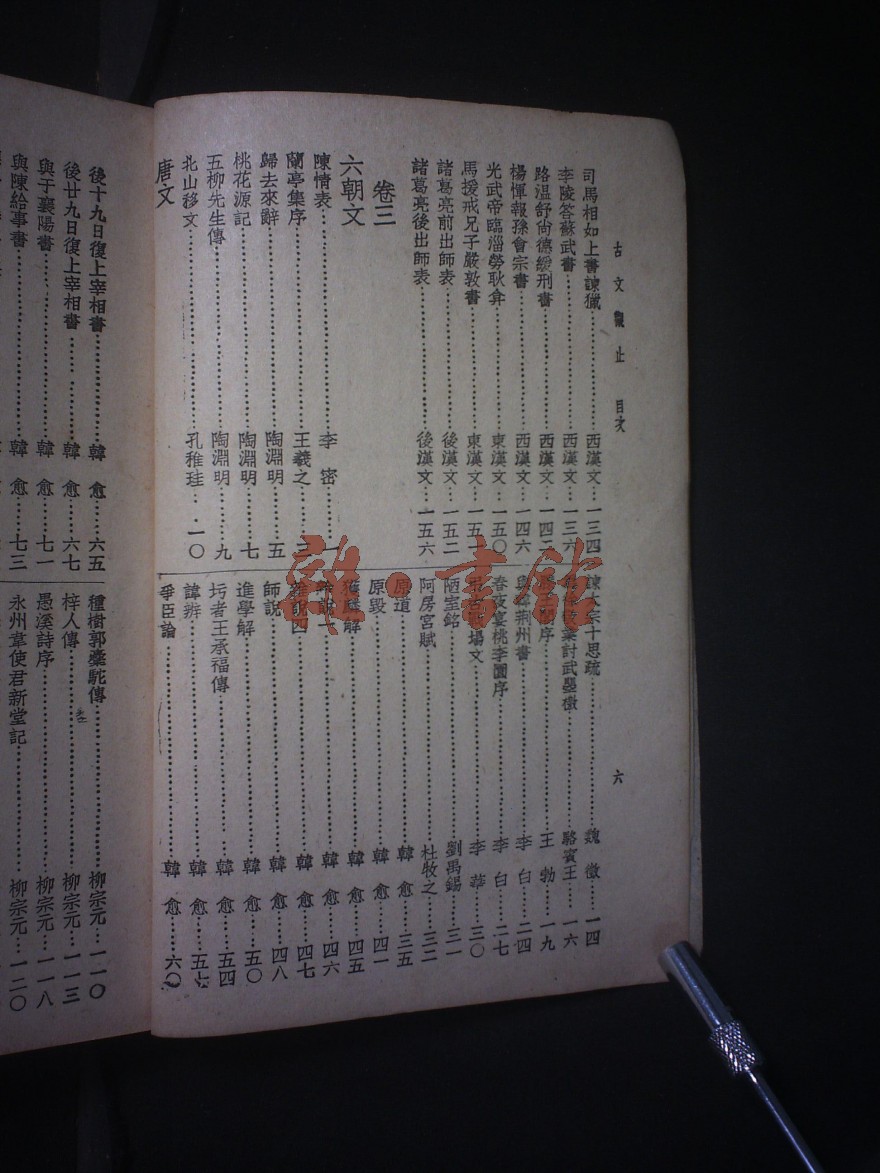 古文觀止 目次 六
司馬相如上書諫獵 西漢文 一三四
李陵答蘇武書 西漢文 一三六
路溫舒尚德緩刑書 西漢文 一四二
楊惲報孫會宗書 西漢文 一四六
光武帝臨淄勞耿弇 東漢文 一五〇
馬援戒兄子嚴敦書 東漢文 一五一
諸葛亮前出師表 後漢文 一五二
諸葛亮後出師表 後漢文 一五六
卷三
六朝文
陳情表 李密 一
蘭亭集序 王羲之
歸去來辭 陶淵明 五
桃花源記 陶淵明 七
五柳先生傳 陶淵明 九
北山移文 孔稚珪 一〇
唐文
諫太宗十思疏 魏徵 一四
討武曌檄 駱賓王 一六
序 王勃 一九
與韓荊州書 李白 二四
春夜宴桃李園序 李白 二七
弔古戰場文 李華 三〇
陋室銘 劉禹錫 三一
阿房宮賦 杜牧之 三二
原道 韓愈 三五
原毀 韓愈 四一
獲麟解 韓愈 四五
雜說一 韓愈 四六
雜說四 韓愈 四七
師說 韓愈 四八
進學解 韓愈 五〇
圬者王承福傳 韓愈 五四
諱辨 韓愈 五七
爭臣論 韓愈 六〇
後十九日復上宰相書 韓愈 六五
後廿九日復上宰相書 韓愈 六七
與于襄陽書 韓愈 七一
與陳給事書 韓愈 七三
種樹郭橐駝傳 柳宗元 一一〇
梓人傳 柳宗元 一一三
愚溪詩序 柳宗元 一一八
永州韋使君新堂記 柳宗元 一二〇
雜·書館